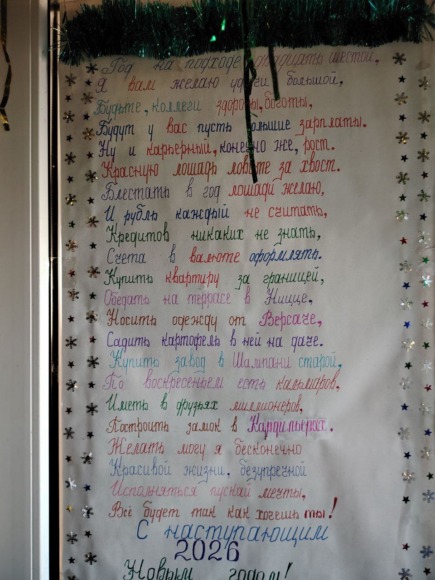 Год на подходе двадцать шестой,
Я вам желаю удачи большой,
Будьте, коллеги здоровы, богаты,
Будут у вас пусть большие зарплаты.
Ну и карьерный, конечно же, рост.
Красную лошадь ловите за хвост.
Блестать в год лошади желаю,
И рубль каждый не считать,
Кредитов никаких не знать,
Счета в валюте оформлять.
Купить квартиру за границей,
Обедать на террасе в Ницце,
Носить одежду от Версаче,
Садить картофель в ней на даче.
Купить завод в Шампани старой,
По воскресеньем есть кальмаров,
Иметь в друзьях миллионеров,
Построить замок в Кордильерах.
Желать могу я бесконечно
Красивой жизни, безупречной
Исполняться пускай мечты,
Всё будет так как хочешь ты!
С наступающим
2026
Новым годом!